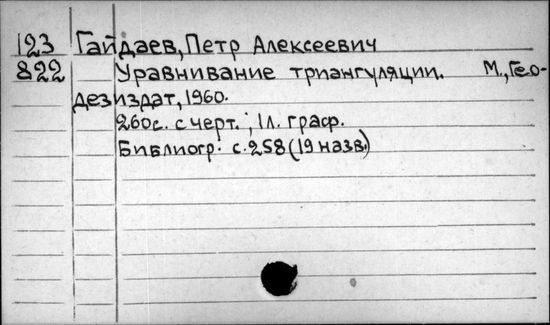 123 Гайдаев, Петр Алексеевич
822 Уравнивание триангуляции. М., Гео-
дезиздат, 1960.
260с. с черт.; 1л. граф.
Библиогр. с. 258 (19 назв.)